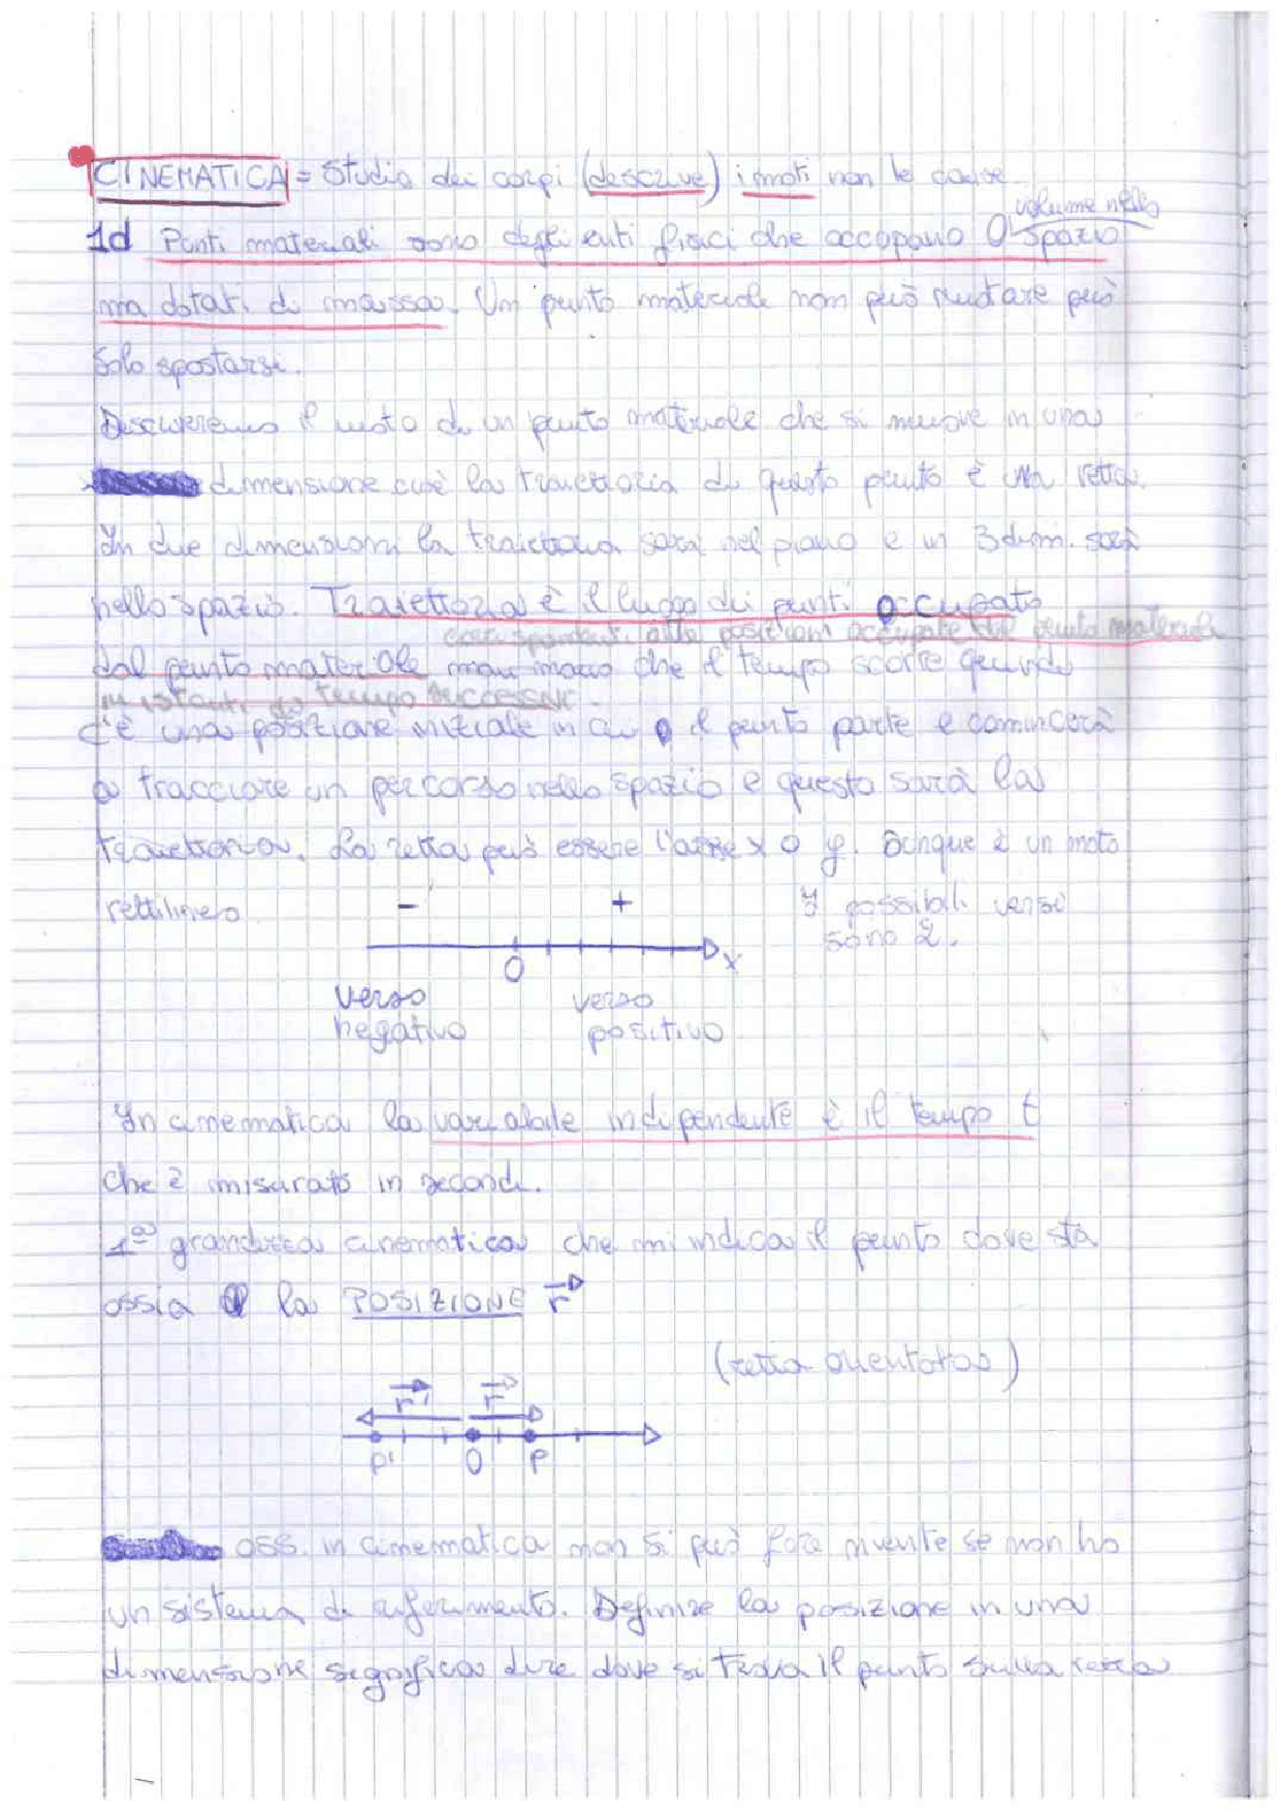 CINEMATICA = Studio dei corpi (descrive) i moti non le cause.
volume nello
1d Punti materiali sono degli enti fisici che occupano O spazio
ma dotati di massa. Un punto materiale non può ruotare può
solo spostarsi.
Descriveremo il moto di un punto materiale che si muove in una
dimensione cioè la traiettoria di questo punto è una retta.
In due dimensioni la traiettoria sarà nel piano e in 3 dim. sarà
nello spazio. Traiettoria è il luogo dei punti occupato
corrispondenti alle posizioni occupate dal punto materiale
dal punto materiale man mano che il tempo scorre quindi
in istanti di tempo successivi.
c'è una posizione iniziale in cui il punto parte e comincerà
a tracciare un percorso nello spazio e questo sarà la
traiettoria. La retta può essere l'asse x o y. Dunque è un moto
rettilineo
- +
I possibili versi
sono 2.
O x
verso verso
negativo positivo
In cinematica la variabile indipendente è il tempo t
che è misurato in secondi.
1ª grandezza cinematica che mi indica il punto dove sta
ossia la POSIZIONE r
(retta orientata)
r' r
P' O P
oss. in cinematica non si può fare niente se non ho
un sistema di riferimento. Definire la posizione in una
dimensione significa dire dove si trova il punto sulla retta